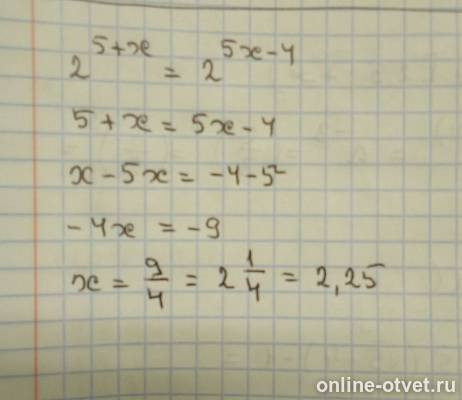 2^(5+x) = 2^(5x-4)
5 + x = 5x - 4
x - 5x = -4 - 5
-4x = -9
x = 9/4 = 2 1/4 = 2,25
online-otvet.ru